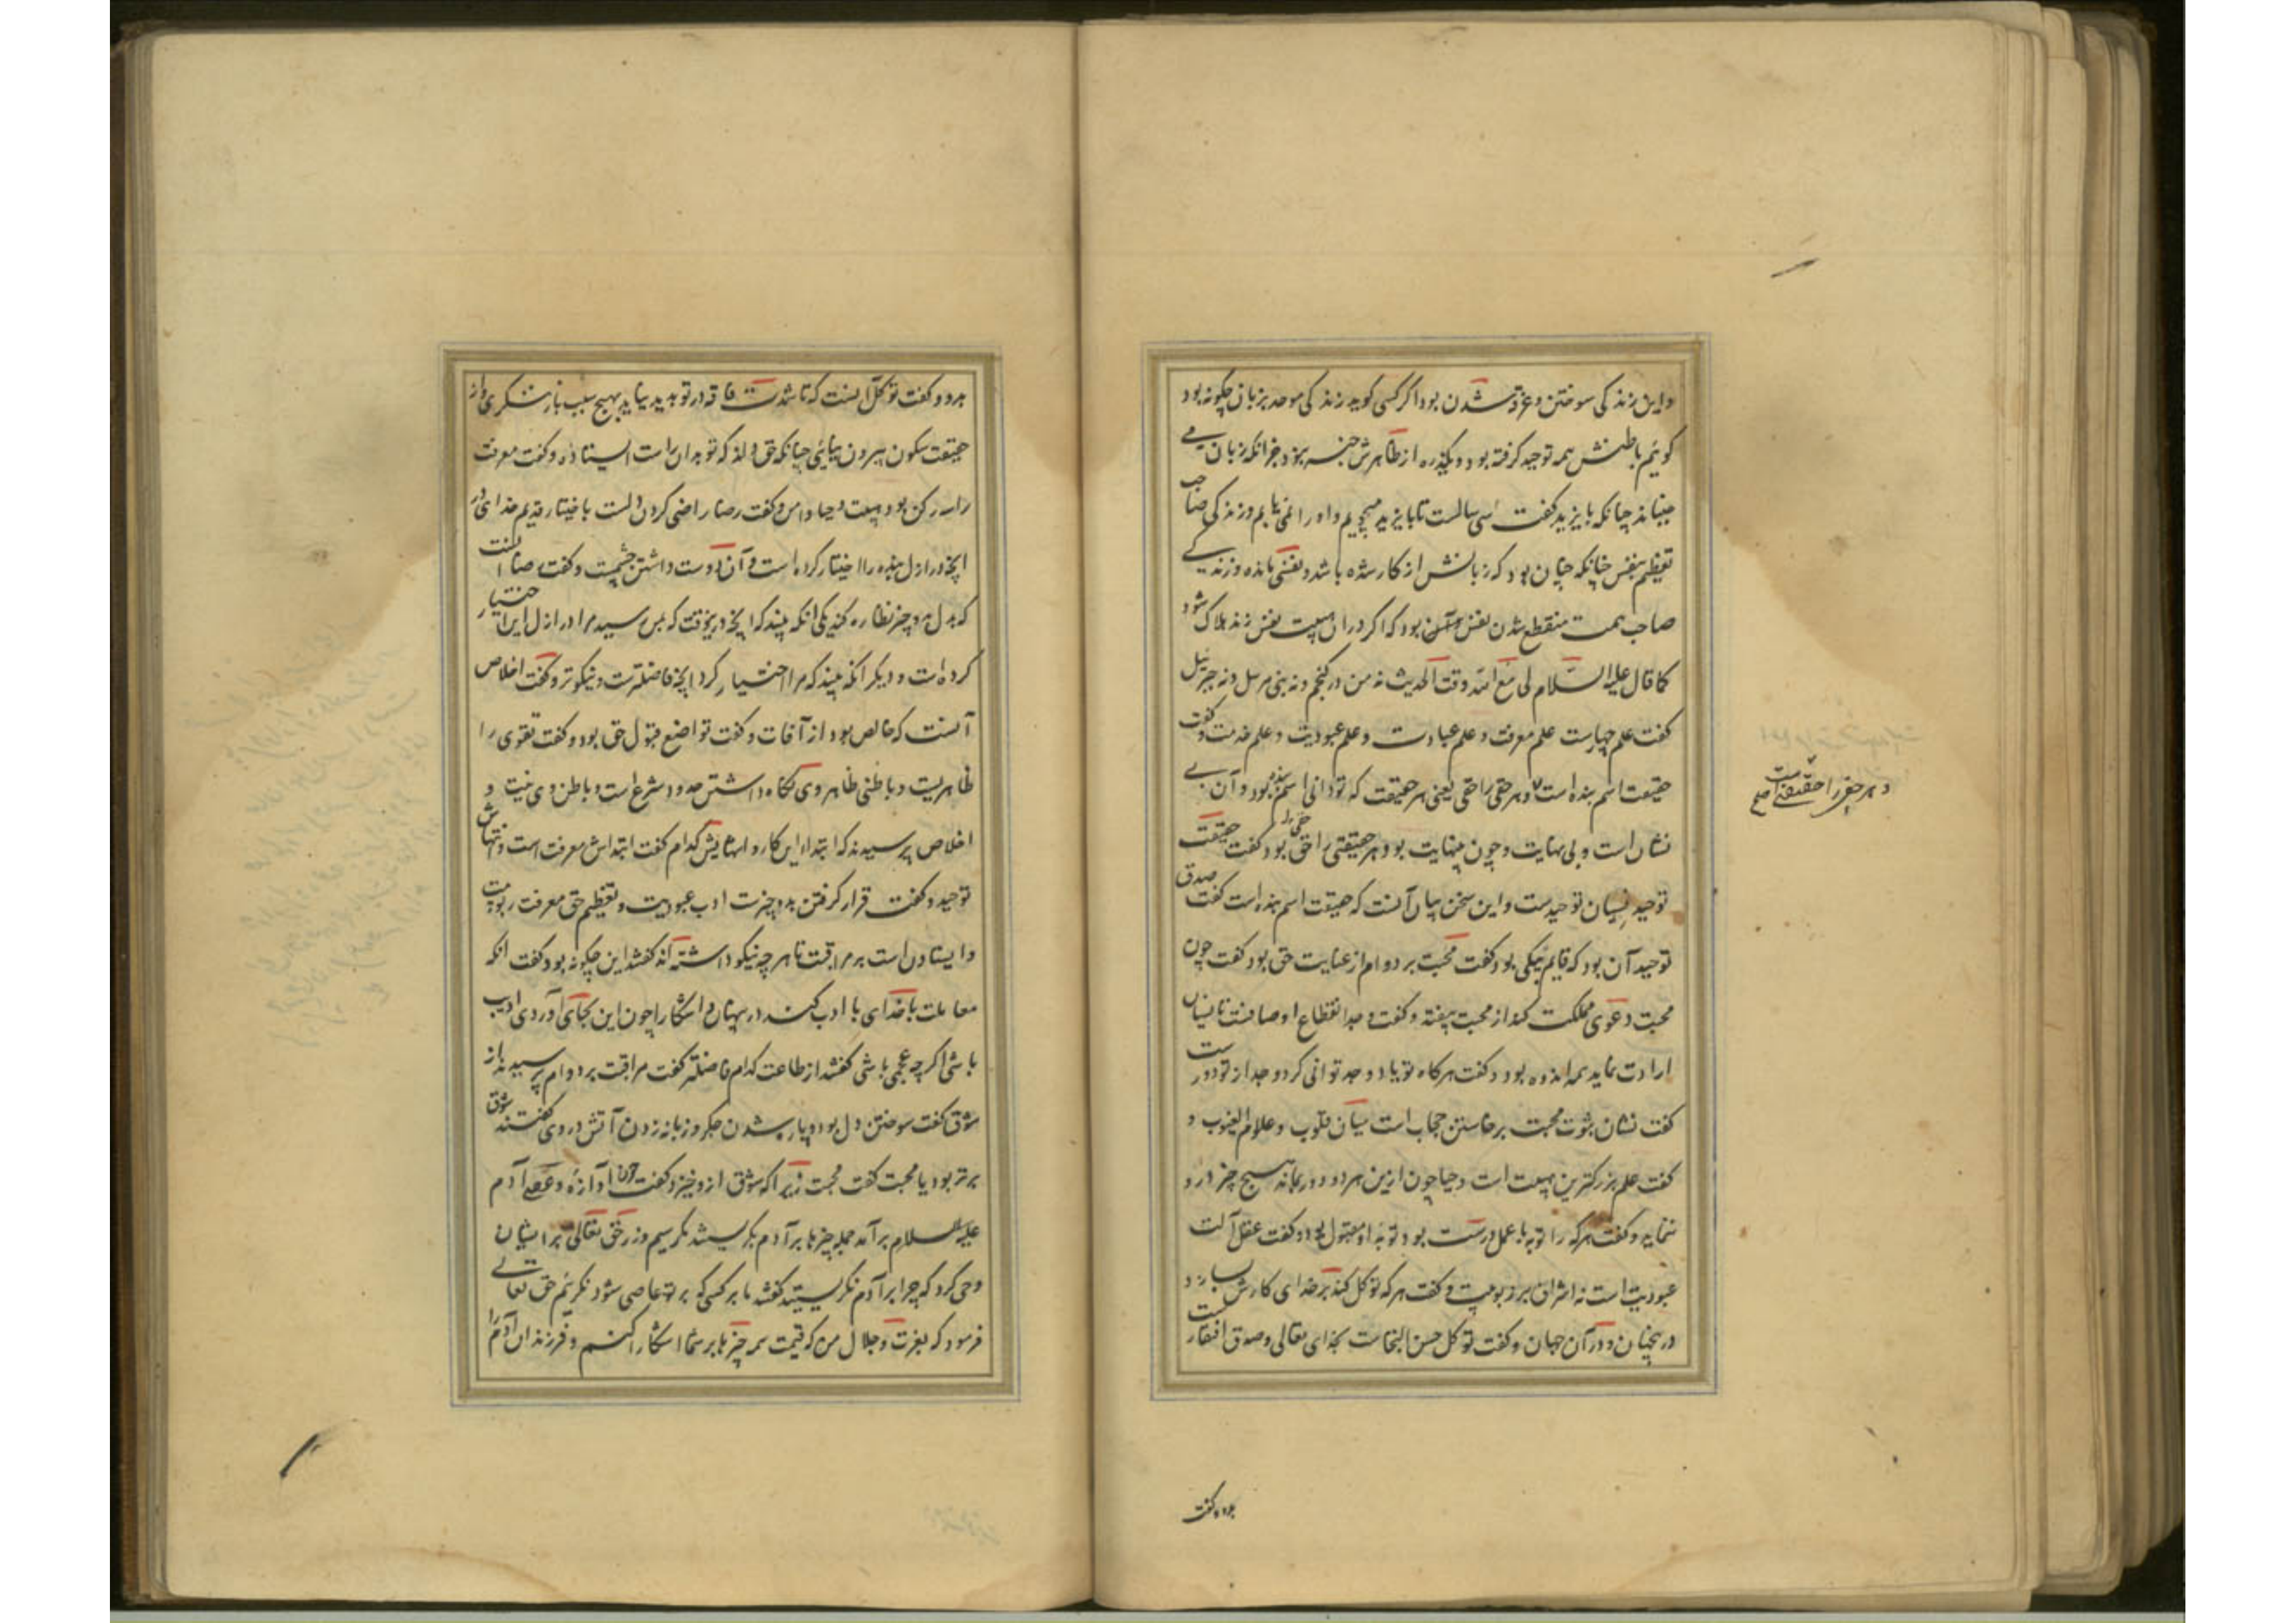 و این زندگی سوختن و غرقه شدن بود اگر کسی گوید زندگی موحد بزبان چگونه بود
گوئیم باطنش همه توحید گرفته بود و یکذره از ظاهرش خبر نبود جز آنکه زبان می
جنباند چنانکه بایزید گفت سی سالست تا بایزید میجویم و او را نمی یابم و زندگی صاحب
تعظیم بنفس چنانکه چنان بود که زبانش از کار شده باشد و نفسی مانده و زندگی
صاحب همت منقطع شدن نفس بود که اگر در آن هیبت نفس زند هلاک شود
کما قال علیه السلام لی مع الله وقت الحدیث نه من در گنجم و نه نبی مرسل و نه جبرئیل
گفت علم چهارست علم معرفت و علم عبادت و علم عبودیت و علم خدمت و گفت
حقیقت اسم بنده است و هر حقی را حقی یعنی هر حقیقت که تو دانی اسم بنده بود و آن بی
نشان است و بی نهایت و چون بینهایت بود هر حقیقتی را حقی بود گفت حقیقت
توحید نسیان توحیدست و این سخن بیان آنست که حقیقت اسم بنده است گفت صدق
توحید آن بود که قایم بیکی بود گفت محبت بر دوام از عنایت حق بود گفت چون
محبت دعوی مملکت کند از محبت بیفتد و گفت وجد انقطاع اوصافست تا نشان
ارادت نماید همه اندوه بود و گفت هرگاه تو یاد وجد توانی کرد وجد از تو دورست
گفت نشان ثبوت محبت برخاستن حجاب است میان قلوب و علام الغیوب و
گفت علم بزرگترین هیبت است و حیا چون ازین هر دو دور بماند هیچ چیز درو
نماند و گفت هر که را توبه با عمل درست بود توبه او مقبول بود و گفت عقل آلت
عبودیت است نه اشراف بر ربوبیت و گفت هر که توکل کند بر خدای کارش بسازد
درینجهان و در آن جهان و گفت توکل حسن التجاست بخدای تعالی و صدق افتقارست
و هر حقی را حقیقتی است صح
بدو و گفت
بدو و گفت توکل آنست که تا شدت فاقه در تو پدید نیاید بهیچ سبب باز ننگری و از
حقیقت سکون بیرون نیائی چنانکه حق داند که تو بدان راست ایستاده و گفت معرفت
را سه رکن بود هیبت و حیا و انس و گفت رضا راضی کردن دلست باختیار قدیم خدای در
آنچه در ازل بنده را اختیار کرده است و آن دوست داشتن خشمست و گفت رضا آنست
که بدل بدو چیز نظاره کند یکی آنکه بیند که آنچه در وقت که بمن رسید مرا در ازل این اختیار
کرده است و دیگر آنکه بیند که مرا اختیار کرد آنچه فاضلترست و نیکوتر و گفت اخلاص
آنست که خالص بود از آفات و گفت تواضع قبول حق بود و گفت تقوی را
ظاهریست و باطنی ظاهر وی نگاه داشتن حدود شرع است و باطن وی نیت و
اخلاص پرسیدند که ابتداء این کار و انتهایش کدام گفت ابتداش معرفت است و انتهاش
توحید و گفت قرار گرفتن بدو چیزست ادب عبودیت و تعظیم حق معرفت ربوبیت
وایستادن است بر مراقبت تا هر چه نیکو داشته اند گفتند این چگونه بود گفت آنکه
معاملت با خدای با ادب کند در پنهان و آشکارا چون این بجای آوردی ادیب
باشی اگرچه عجمی باشی گفتند از طاعت کدام فاضلتر گفت مراقبت بر دوام پرسیدند از
شوق گفت سوختن دل بود و پاره شدن جگر و زبانه زدن آتش در وی گفتند شوق
برتر بود یا محبت گفت محبت زیرا که شوق ازو خیزد و گفت چون آوازه و عصی آدم
علیه السلام برآمد جمله چیزها بر آدم بگریستند مگر سیم و زر حق تعالی بر ایشان
وحی کرد که چرا بر آدم نگریستید گفتند ما بر کسی که بر تو عاصی شود نگرییم حق تعالی
فرمود که بعزت و جلال من که قیمت همه چیزها بر شما آشکارا کنم و فرزندان آدم را